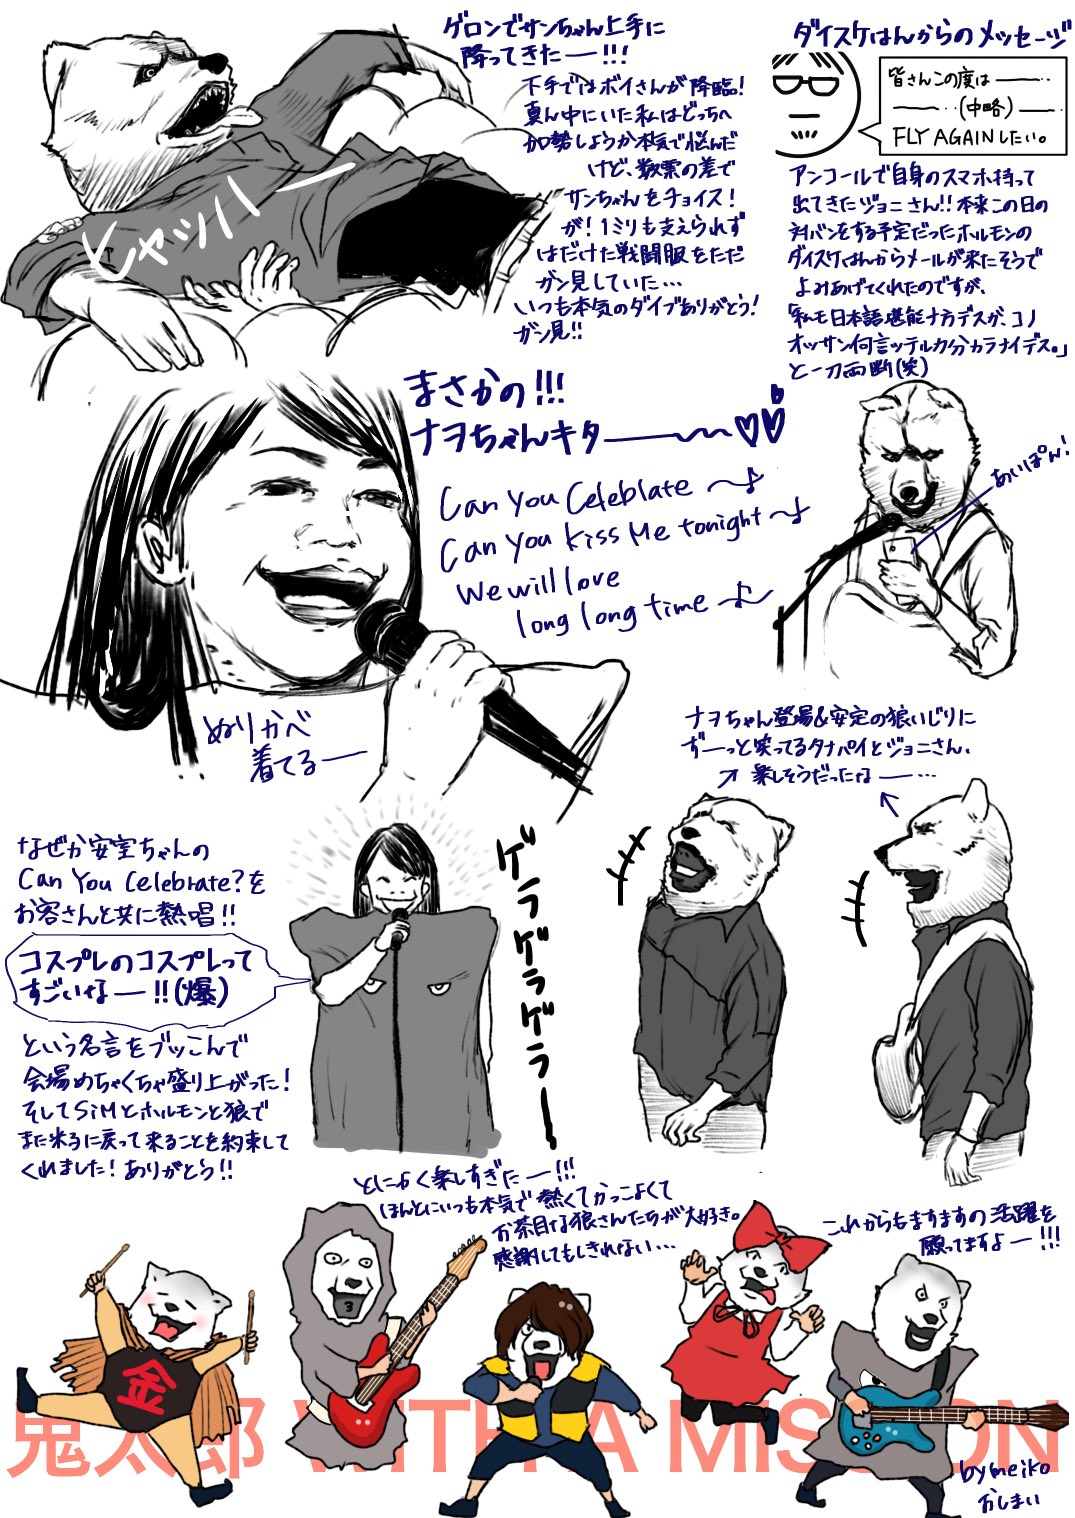 ゲロンでサンちゃん上手に
降ってきたー!!!
下手ではボイさんが降臨!
真ん中にいた私はどっちへ
加勢しようか本気で悩んだ
けど、数票の差で
サンちゃんをチョイス!
が!1ミリも支えられず
はだけた戦闘服をただ
ガン見していた…
いつも本気のダイブありがとう!
ガン見!!
ヒャッハー
ダイスケはんからのメッセージ
皆さんこの度は――…
――…(中略)――
FLY AGAINしたい。
アンコールで自身のスマホ持って
出てきたジョニさん!!本来この日の
対バンをする予定だったホルモンの
ダイスケはんからメールが来たそうで
よみあげてくれたのですが、
「私モ日本語堪能ナ方デスが、コノ
オッサン何言ッテルカ分カラナイデス。」
と一刀両断(笑)
あいぽん!
まさかの!!!
ナヲちゃんキター――〜♡♡
Can You Celeblate 〜♪
Can You kiss Me tonight 〜♪
We will love
long long time 〜♪
ぬりかべ
着てるー
ナヲちゃん登場&安定の狼いじりに
ずーっと笑ってるタナパイとジョニさん、
楽しそうだったなー…
なぜか安室ちゃんの
Can You Celebrate?を
お客さんと共に熱唱!!
コスプレのコスプレって
すごいなー!!(爆)
という名言をブッこんで
会場めちゃくちゃ盛り上がった!
そしてSiMとホルモンと狼で
また米子に戻って来ることを約束して
くれました!ありがとう!!
ゲラゲラゲラー
とにかく楽しすぎたー!!!
ほんとにいつも本気で熱くてかっこよくて
お茶目な狼さんたちが大好き。
感謝してもしきれない…
これからもますますの活躍を
願ってますよー!!!
金
鬼太郎 WITH A MISSION
by meiko
おしまい